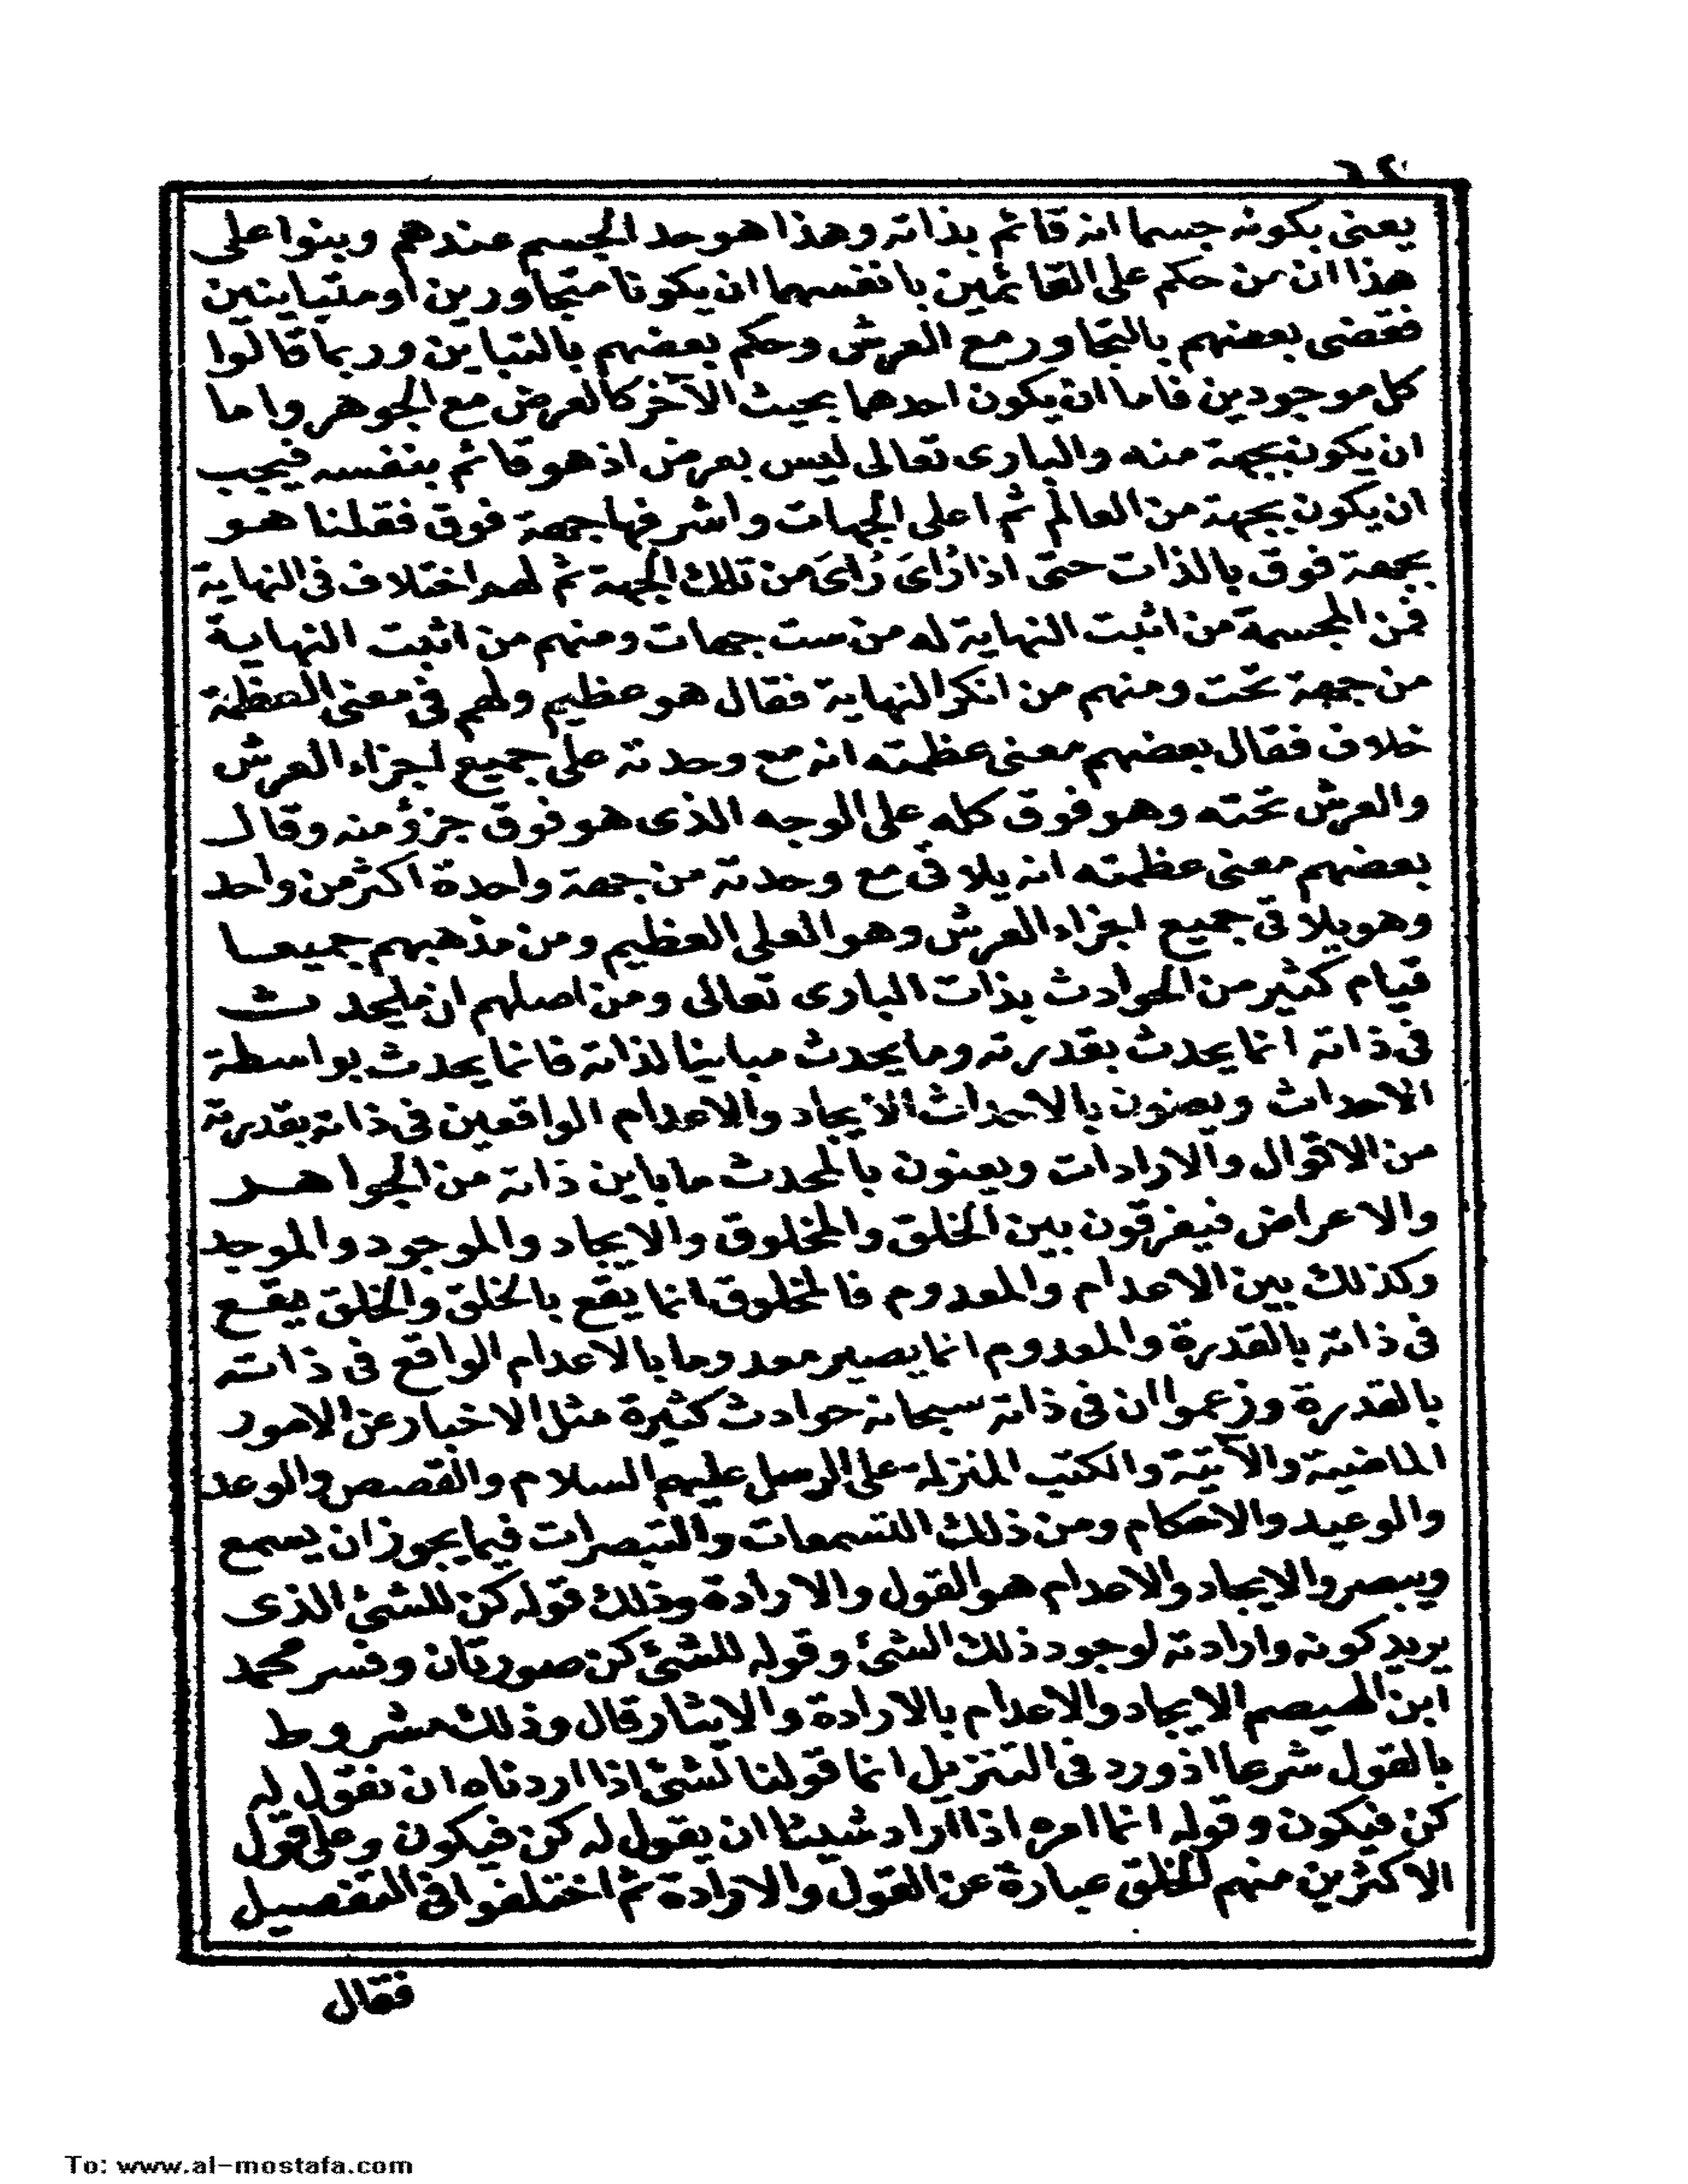 ٦٢
يعنى بكونه جسما انه قائم بذاته وهذا هو حد الجسم عندهم وبنوا على
هذا ان من حكم على القائمين بانفسهما ان يكونا متجاورين او متباينين
فقضى بعضهم بالتجاور مع العرش وحكم بعضهم بالتباين وربما قالوا
كل موجودين فاما ان يكون احدهما بحيث الآخر كالعرض مع الجوهر واما
ان يكون بجهة منه والبارى تعالى ليس بعرض اذ هو قائم بنفسه فيجب
ان يكون بجهة من العالم ثم اعلى الجهات واشرفها جهة فوق فقلنا هو
بجهة فوق بالذات حتى اذا رُاىَ رُاىَ من تلك الجهة ثم لهم اختلاف فى النهاية
فمن المجسمة من اثبت النهاية له من ست جهات ومنهم من اثبت النهاية
من جهة تحت ومنهم من انكر النهاية فقال هو عظيم ولهم فى معنى العظمة
خلاف فقال بعضهم معنى عظمته انه مع وحدته على جميع اجزاء العرش
والعرش تحته وهو فوق كله على الوجه الذى هو فوق جزؤ منه وقال
بعضهم معنى عظمته انه يلاقى مع وحدته من جهة واحدة اكثر من واحد
وهو يلاقى جميع اجزاء العرش وهو العلى العظيم ومن مذهبهم جميعا
قيام كثير من الحوادث بذات البارى تعالى ومن اصلهم ان ما يحدث
فى ذاته انما يحدث بقدرته وما يحدث مباينا لذاته فانما يحدث بواسطة
الاحداث ويعنون بالاحداث الايجاد والاعدام الواقعين فى ذاته بقدرته
من الاقوال والارادات ويعنون بالمحدث ما باين ذاته من الجواهر
والاعراض فيفرقون بين الخلق والمخلوق والايجاد والموجود والموجد
وكذلك بين الاعدام والمعدوم فالمخلوق انما يقع بالخلق والخلق يقع
فى ذاته بالقدرة والمعدوم انما يصير معدوما بالاعدام الواقع فى ذاته
بالقدرة وزعموا ان فى ذاته سبحانه حوادث كثيرة مثل الاخبار عن الامور
الماضية والآتية والكتب المنزلة على الرسل عليهم السلام والقصص والوعد
والوعيد والاحكام ومن ذلك التسمعات والتبصرات فيما يجوز ان يسمع
ويبصر والايجاد والاعدام هو القول والارادة وذلك قوله كن للشئ الذى
يريد كونه وارادته لوجود ذلك الشئ وقوله للشئ كن صورتان وفسر محمد
ابن الهيصم الايجاد والاعدام بالارادة والايثار قال وذلك مشروط
بالقول شرعا اذ ورد فى التنزيل انما قولنا لشئ اذا اردناه ان نقول له
كن فيكون وقوله انما امره اذا اراد شيئا ان يقول له كن فيكون وعلى قول
الاكثرين منهم الخلق عبارة عن القول والارادة ثم اختلفوا فى التفصيل
فقال
To: www.al-mostafa.com